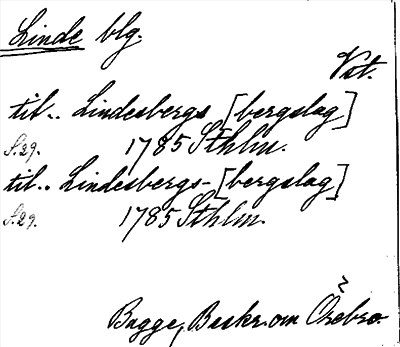 Linde blg.
Vst.
til.. Lindesbergs [bergslag]
S.29. 1785 Sthlm.
til.. Lindesbergs- [bergslag]
S.29. 1785 Sthlm.
Bagge, Beskr. om Örebro.